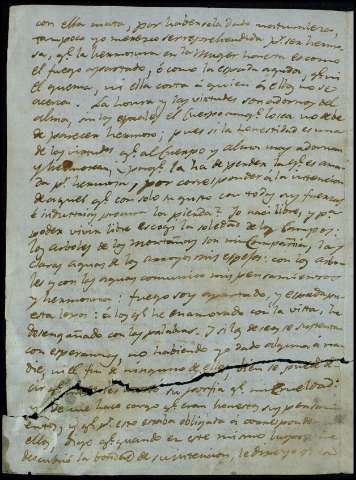 con ella mata, por habersela dado naturaleza,
tampoco yo merezco ser reprehendida pr. ser hermo-
sa, qe. la hermosura en la Muger honesta es como
el fuego apartado, ó como la espada aguda, qe. ni
el quema, ni ella corta á quien á ellos no se
acerca. La honra y las virtudes son adornos del
alma, sin los quales el Cuerpo aunqe. lo sea no debe
de parecer hermoso; pues si la honestidad es una
de las virtudes qe. al Cuerpo y alma mas adornan
y hermosean, porqe. la ha de perder la qe. es ama-
da pr. hermosa, por corresponder á la intencion
de aquel qe. con solo su gusto con todas sus fuerzas
é industrias procura la pierda? Yo nací libre, y pa.
poder vivir libre escogí la soledad de los Campos:
los arboles de las montañas son mi Compañia, las
claras aguas de los arroyos mis espejos: con los arbo-
les y con las aguas comunico mis pensamientos
y hermosura: fuego soy apartado, y espada pu-
esta lexos: á los qe. he enamorado con la vista, he
desengañado con las palabras. Y si los deseos se sustentan
con esperanzas, no habiendo yo dado alguna á na-
die, ni el fin de ninguno de ellos, bien se puede de-
cir qe. antes su porfia qe. mi Crueldad.
se me hace cargo qe. eran honestos sus pensami-
entos, y qe. pr. esto estaba obligada á corresponder á
ellos, digo qe. quando en este mismo lugar
descubrió la bondad de su intencion, le dixe yo qe. la